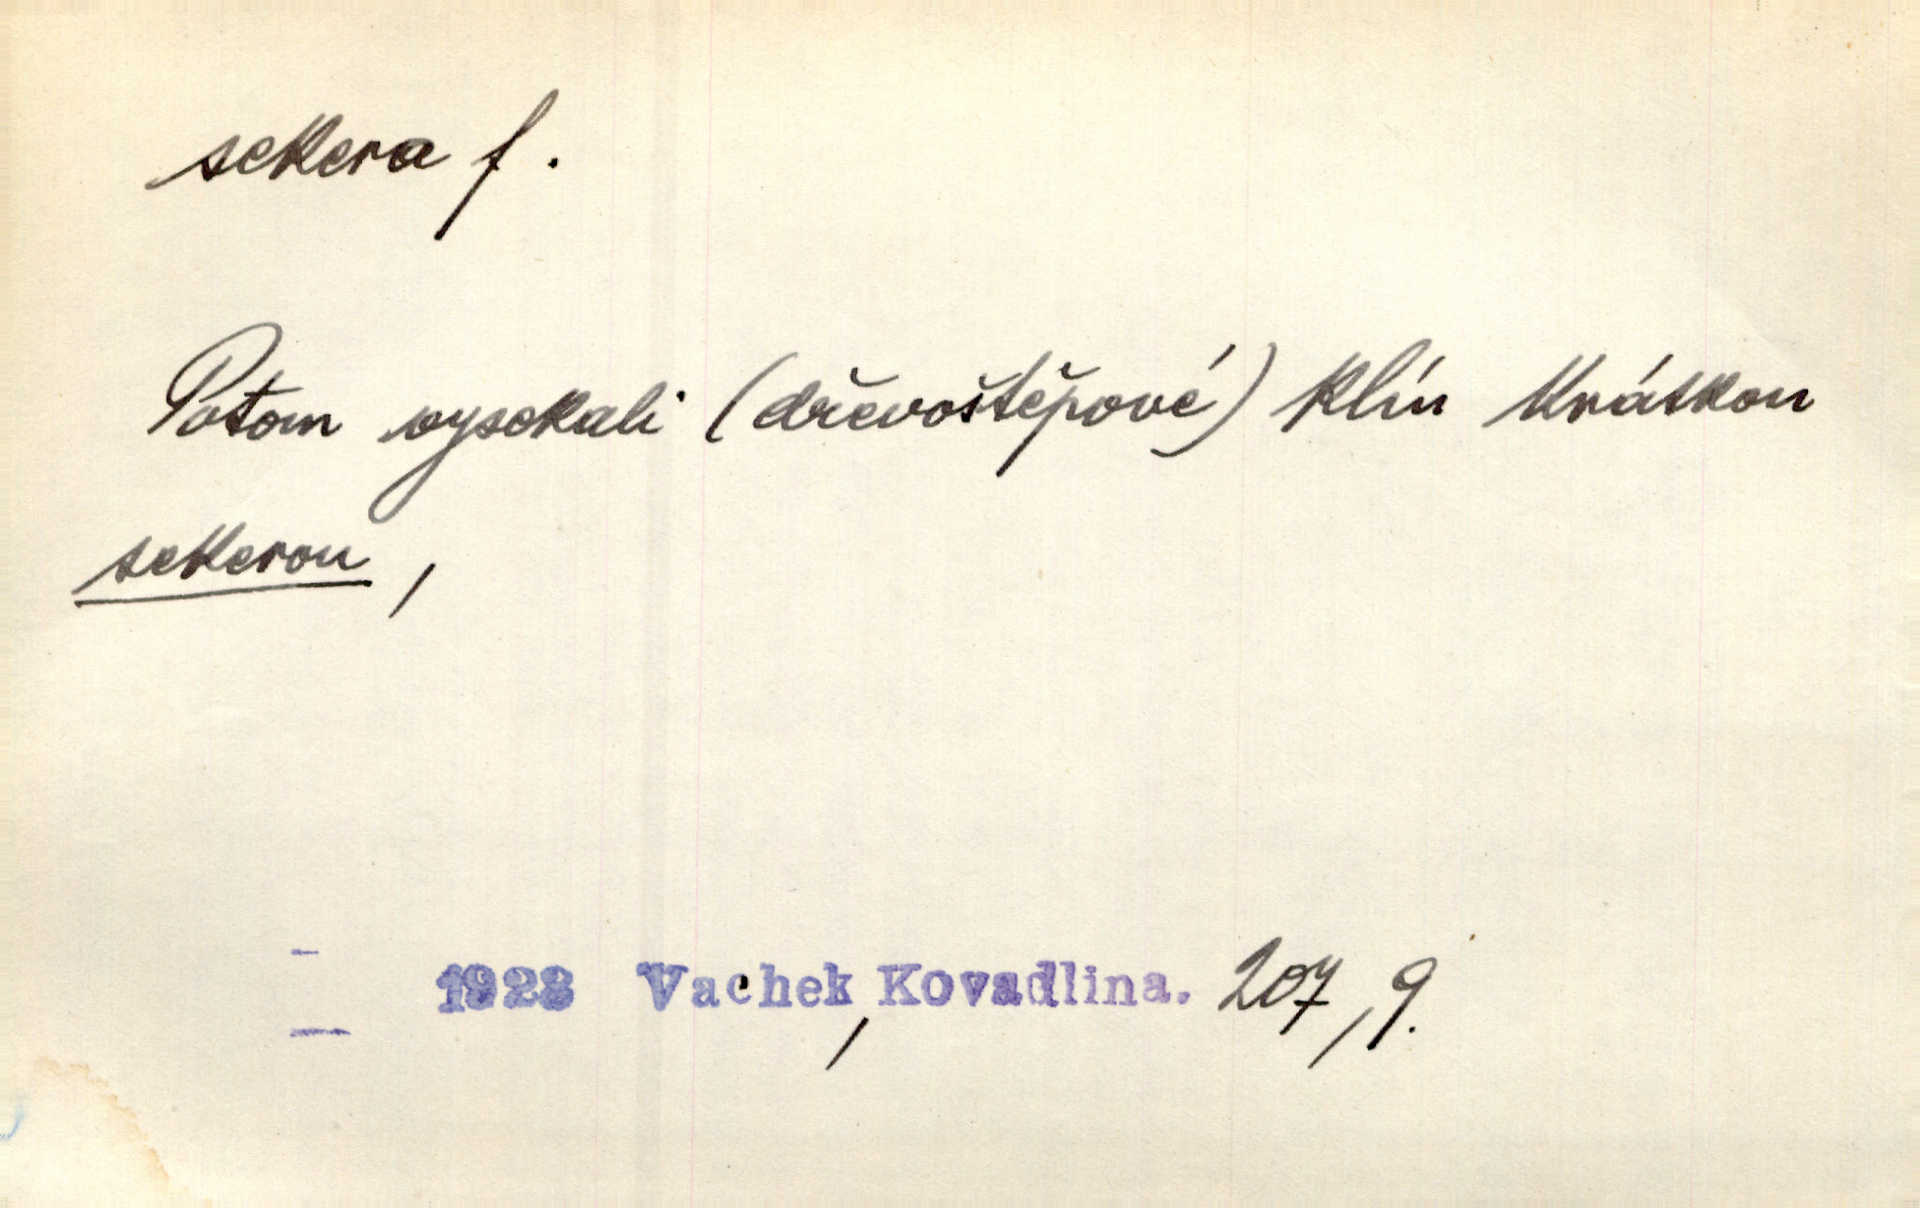 sekera f.
Potom vysekali (dřevoštěpové) klín krátkou
sekerou,
1928 Vachek, Kovadlina. 207, 9.